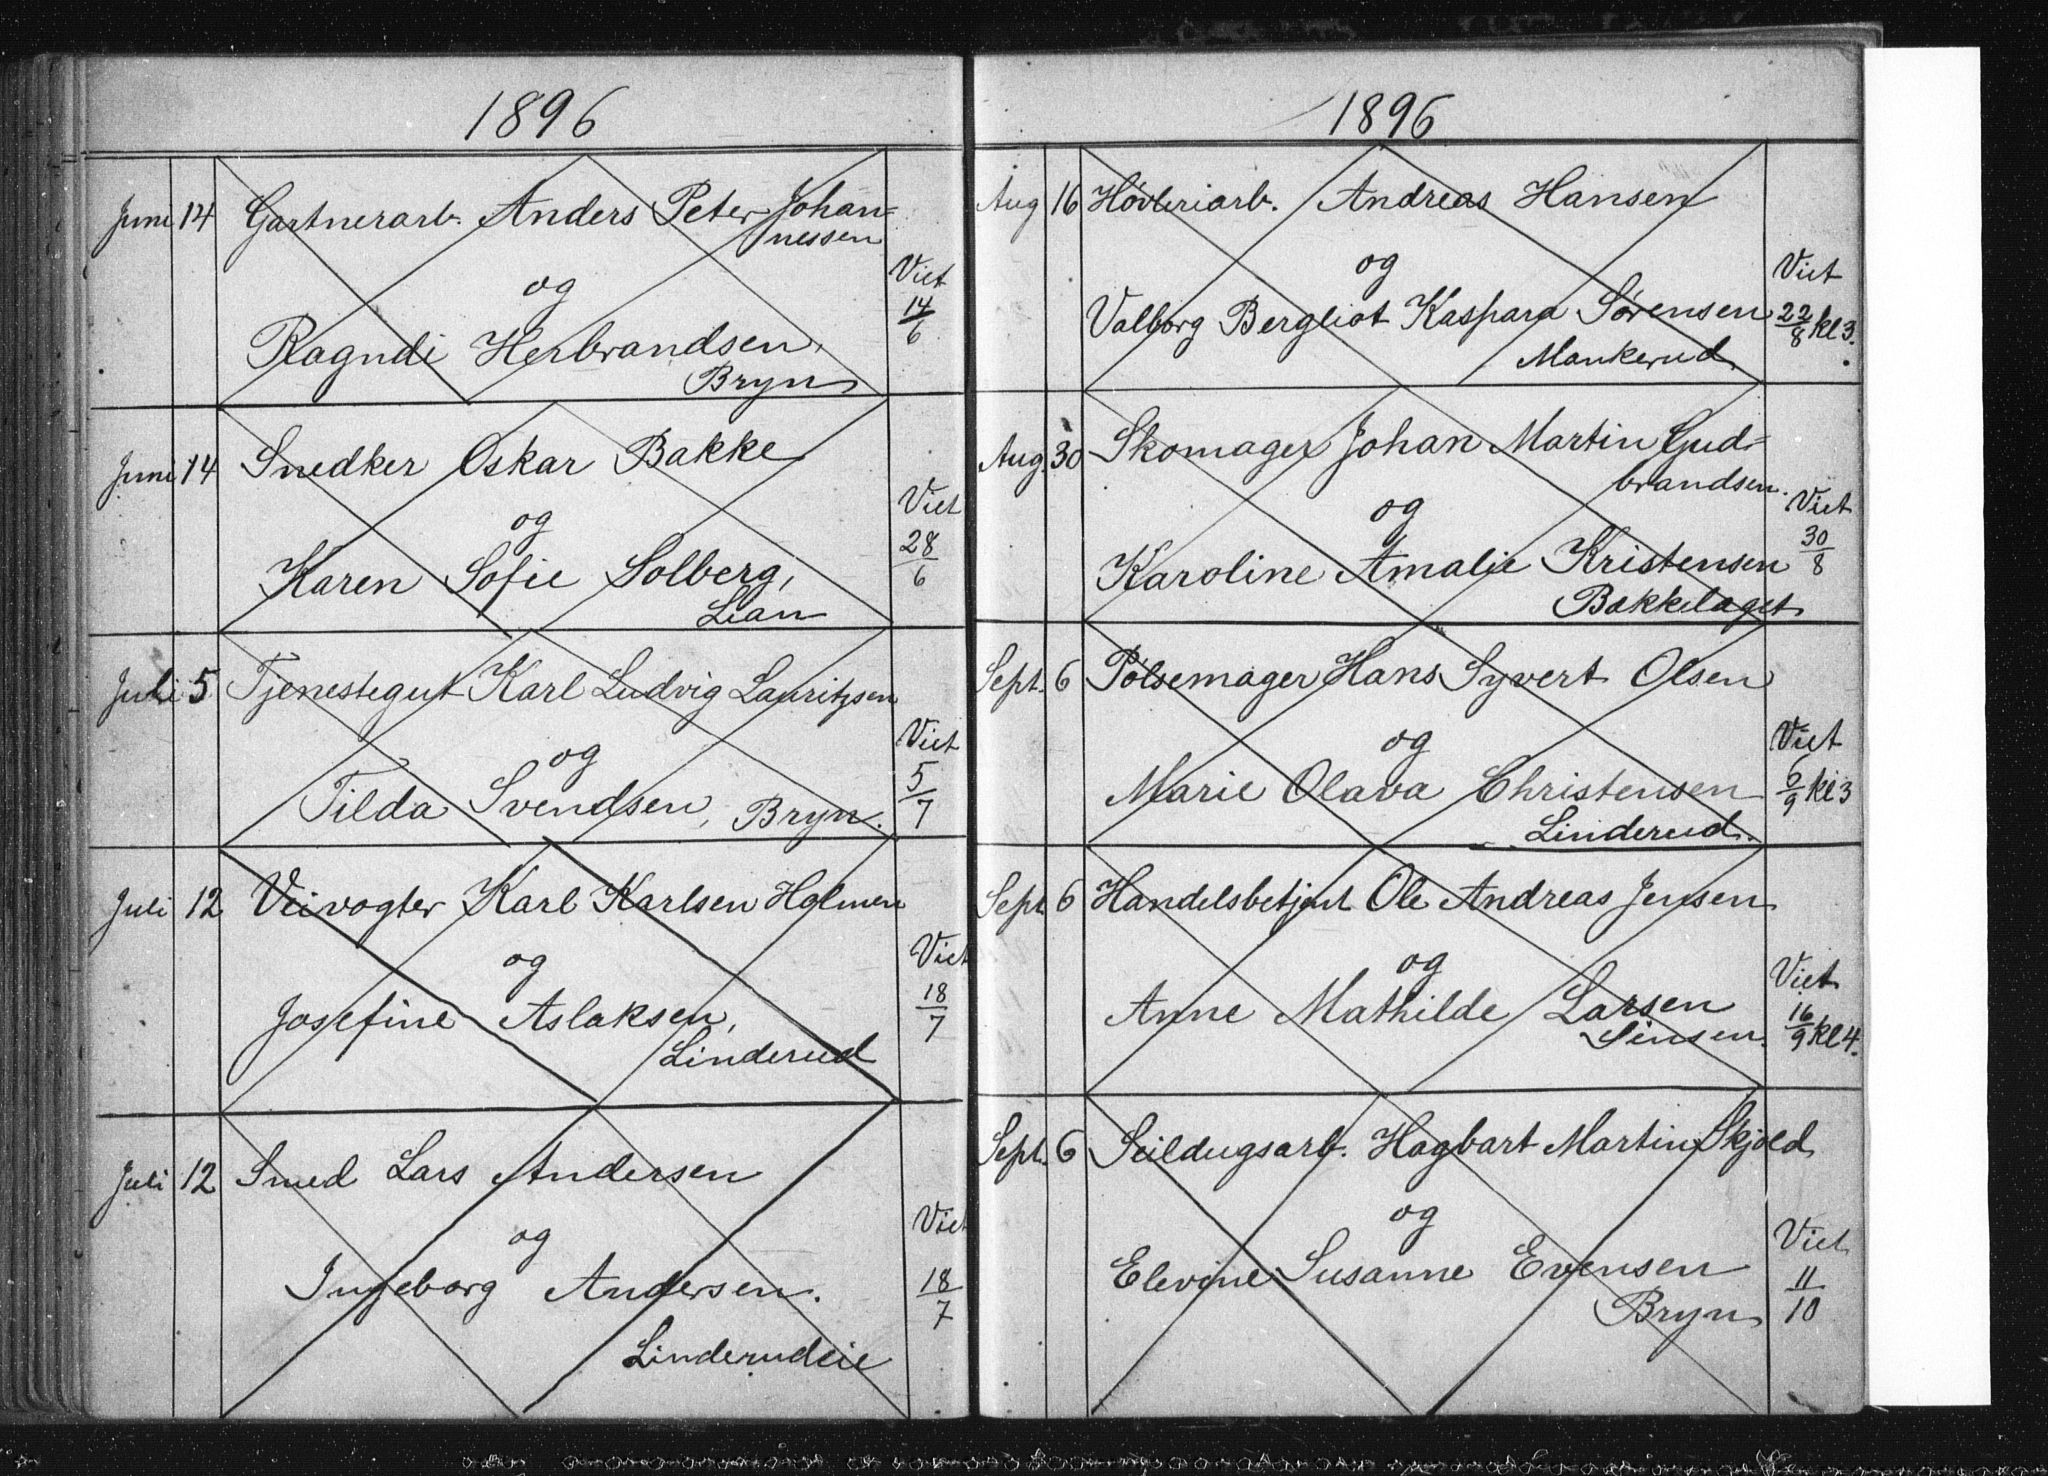 1896
Juni 14 Gartnerarb. Anders Peter Johan=
nessen
og
Viet 14/6
Ragndi Herbrandsen,
Bryn
Juni 14 Snedker Oskar Bakke
og
Viet 28/6
Karen Sofie Solberg,
Lian
Juli 5 Tjenestegut Karl Ludvig Lauritzsen
og
Viet 5/7
Tilda Svendsen, Bryn.
Juli 12 Veivogter Karl Karlsen Holmen
og
Viet 18/7
Josefine Aslaksen,
Linderud
Juli 12 Smed Lars Andersen
og
Viet 18/7
Ingeborg Andersen.
Linderudeie
1896
Aug 16 Høvleriarb. Andreas Hansen
og
Viet 22/8 kl 3.
Valborg Bergliot Kaspara Sørensen
Mankerud
Aug. 30 Skomager Johan Martin Gud=
brandsen.
og
Viet 30/8
Karoline Amalie Kristensen
Bækkelaget
Sept. 6 Pølsemager Hans Syvert Olsen
og
Viet 6/9 kl 3
Marie Olava Christensen
Linderud.
Sept 6 Handelsbetjent Ole Andreas Jensen
og
Viet 16/9 kl 4.
Anne Mathilde Larsen
Sinsen.
Sept. 6 Seildugsarb. Hagbart Martin Skjold
og
Viet 11/10
Elevine Susanne Evensen
Bryn